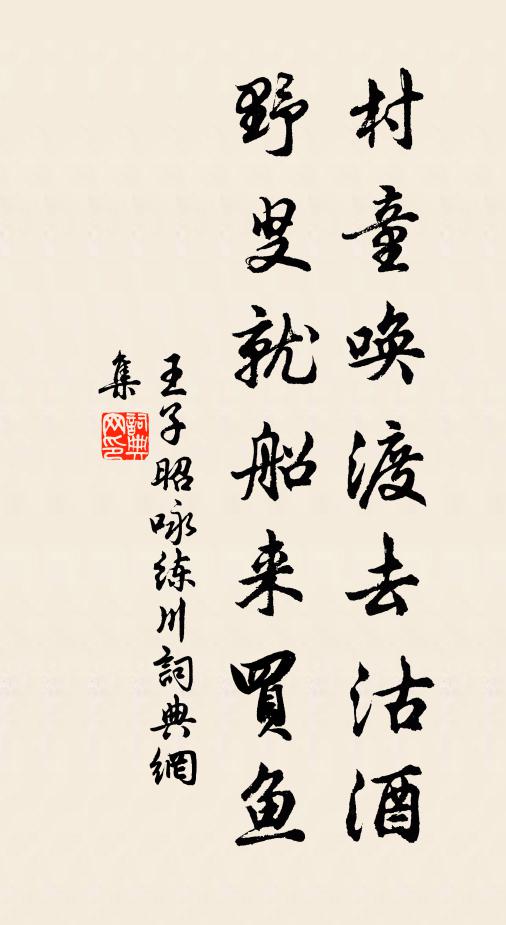 村童唤渡去沽酒
野叟就船来買鱼
王子昭咏练川詞典網
集
詞典网印